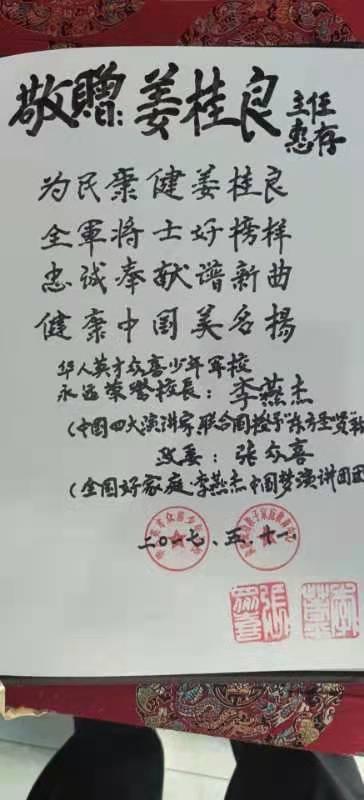 敬贈：姜桂良 主任
惠存
为民康健姜桂良
全軍将士好榜样
忠诚奉献谱新曲
健康中国美名揚
华人英才众喜少年军校
永远荣誉校长：李燕杰
(中国四大演讲家、联合国授予"东方圣贤
政委：张众喜
(全国好家庭、李燕杰中国梦演讲团团
二〇一七、五、廿一